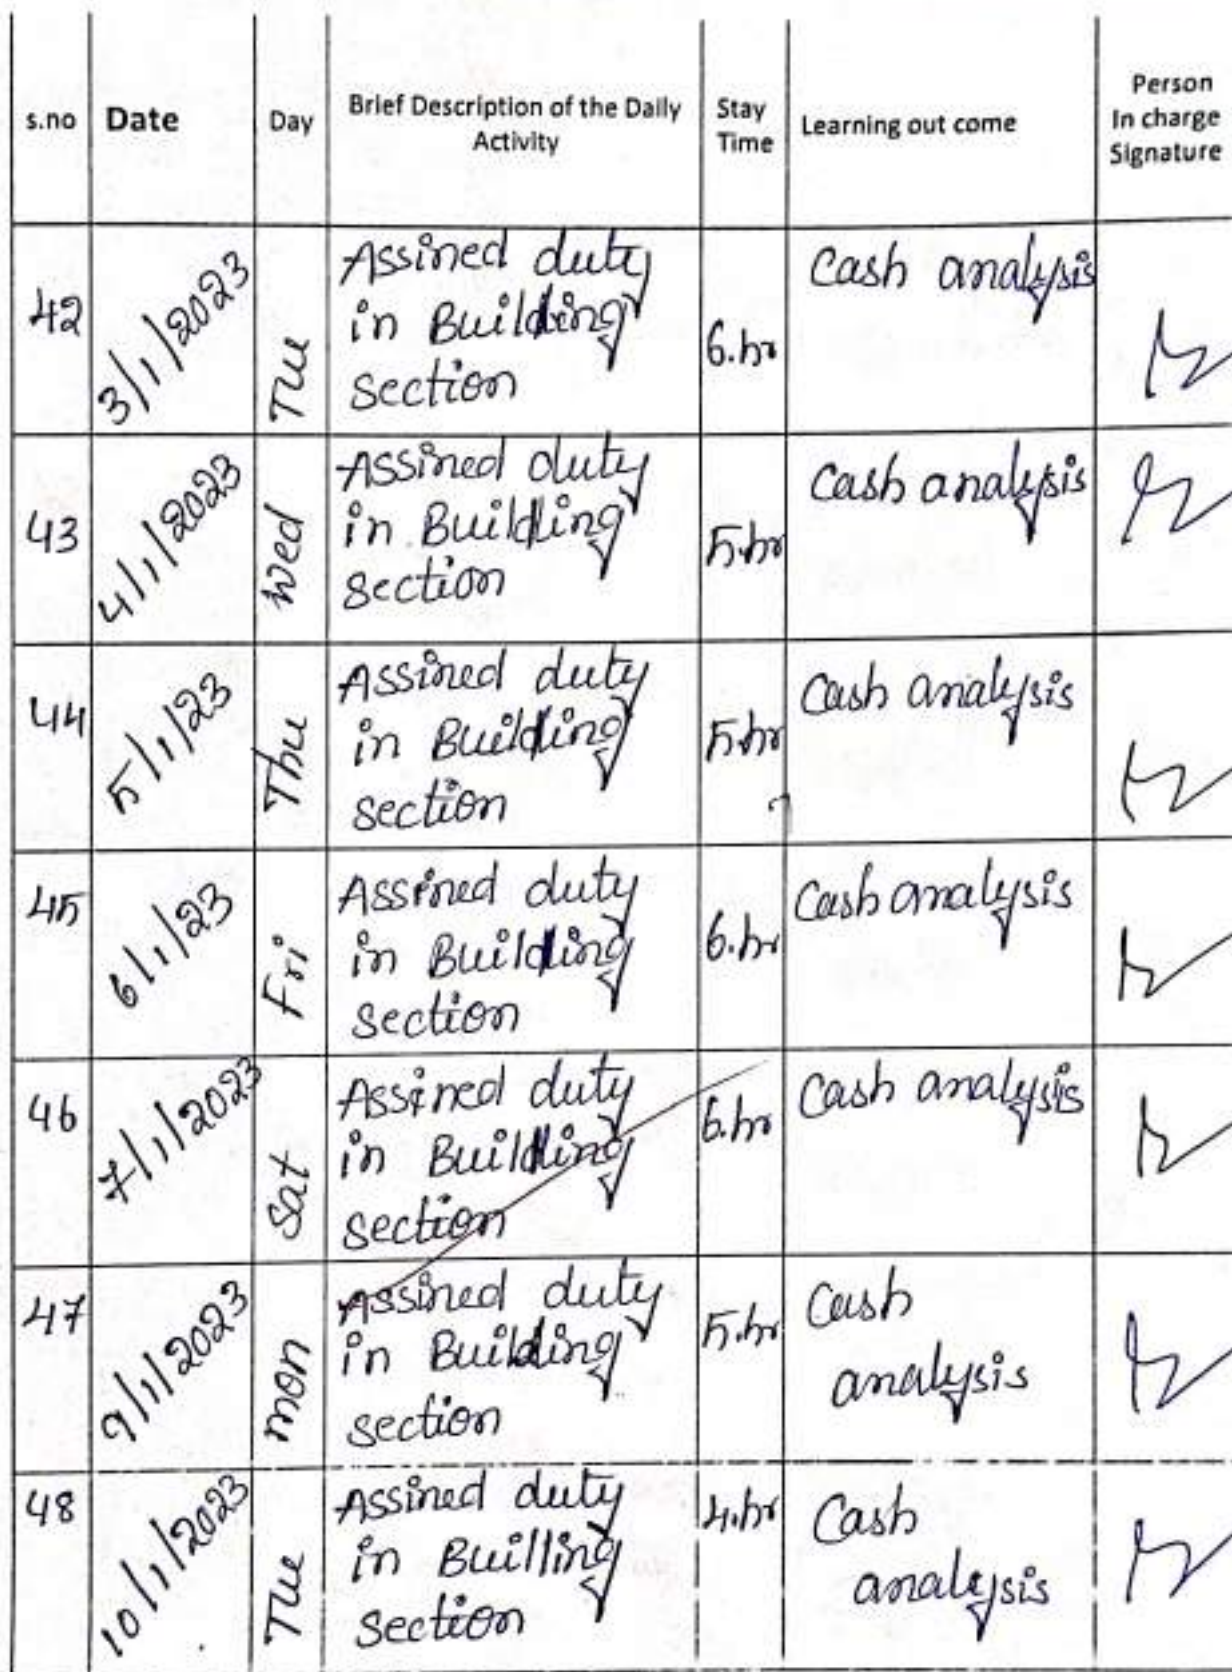 s.no Date Day Brief Description of the Daily Activity Stay Time Learning out come Person In charge Signature
42 3/1/2023 Tue Assined duty in Building section 6.hr Cash analysis
43 4/1/2023 Wed Assined duty in Building section 5.hr Cash analysis
44 5/1/23 Thu Assined duty in Building section 5.hr Cash analysis
45 6/1/23 Fri Assined duty in Building section 6.hr Cash analysis
46 7/1/2023 Sat Assined duty in Building section 6.hr Cash analysis
47 9/1/2023 mon Assined duty in Building section 5.hr Cash analysis
48 10/1/2023 Tue Assined duty in Builling section 4.hr Cash analysis